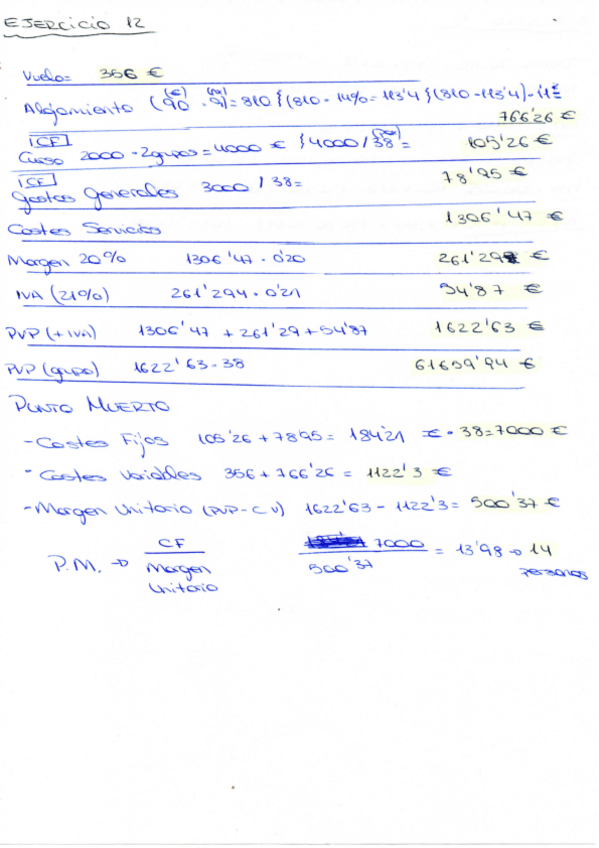 EJERCICIO 12
Vuelo= 356 €
Alojamiento (90 (€) · 9) = 810 { (810 - 14% = 113'4 } (810 - 113'4) ·
766'26 €
CF
Curso 2000 · 2grupos = 4000 € } 4000 / 38 = 105'26 €
CF
gastos generales 3000 / 38 = 78'95 €
Costes Servicios 1306'47 €
Margen 20% 1306'47 · 0'20 261'29 €
IVA (21%) 261'294 · 0'21 54'87 €
PVP (+ IVA) 1306'47 + 261'29 + 54'87 1622'63 €
PVP (grupo) 1622'63 · 38 61659'94 €
PUNTO MUERTO
- Costes Fijos 105'26 + 78'95 = 184'21 € · 38 = 7000 €
- Costes variables 356 + 766'26 = 1122'3 €
- Margen Unitario (PVP - CV) 1622'63 - 1122'3 = 500'37 €
P.M. → CF / Margen Unitario 7000 / 500'37 = 13'98 → 14
personas